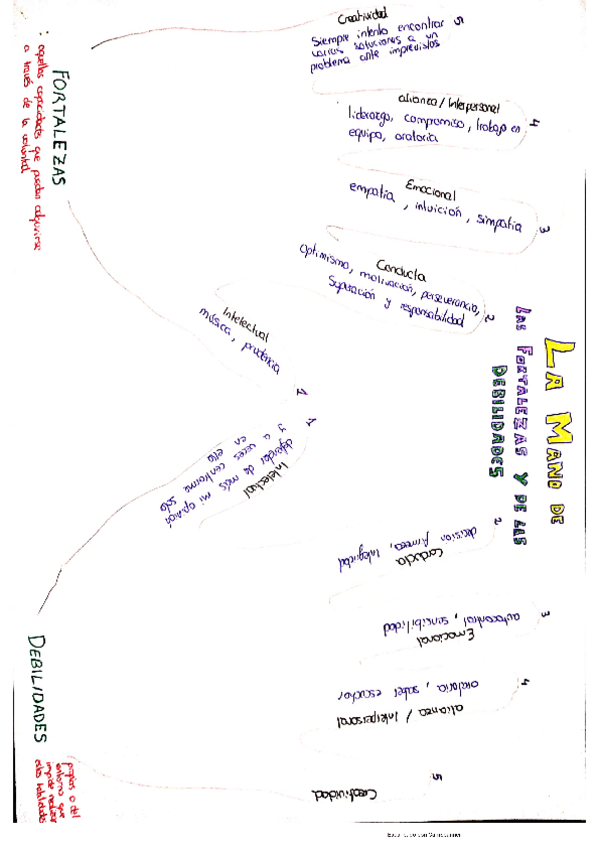 LA MANO DE
LAS FORTALEZAS Y DE LAS
DEBILIDADES
FORTALEZAS
: aquellas capacidades que pueden adquirirse
a través de la voluntad
5
Creatividad
Siempre intento encontrar
varias soluciones a un
problema ante imprevistos
4
alianza / Interpersonal
liderazgo, compromiso, trabajo en
equipo, oratoria
3
Emocional
empatía, intuición, simpatía
2
Conducta
Optimismo, motivación, perseverancia,
superación y responsabilidad
1
Intelectual
música, prudencia
DEBILIDADES
propias o del
entorno que
impide realizar
estas habilidades
1
Intelectual
defender de más mi opinión
y a veces conforme solo
en ella
2
Conducta
decisión firmeza, integridad
3
Emocional
autocontrol, sensibilidad
4
alianza / Interpersonal
oratoria, saber escuchar
5
Creatividad